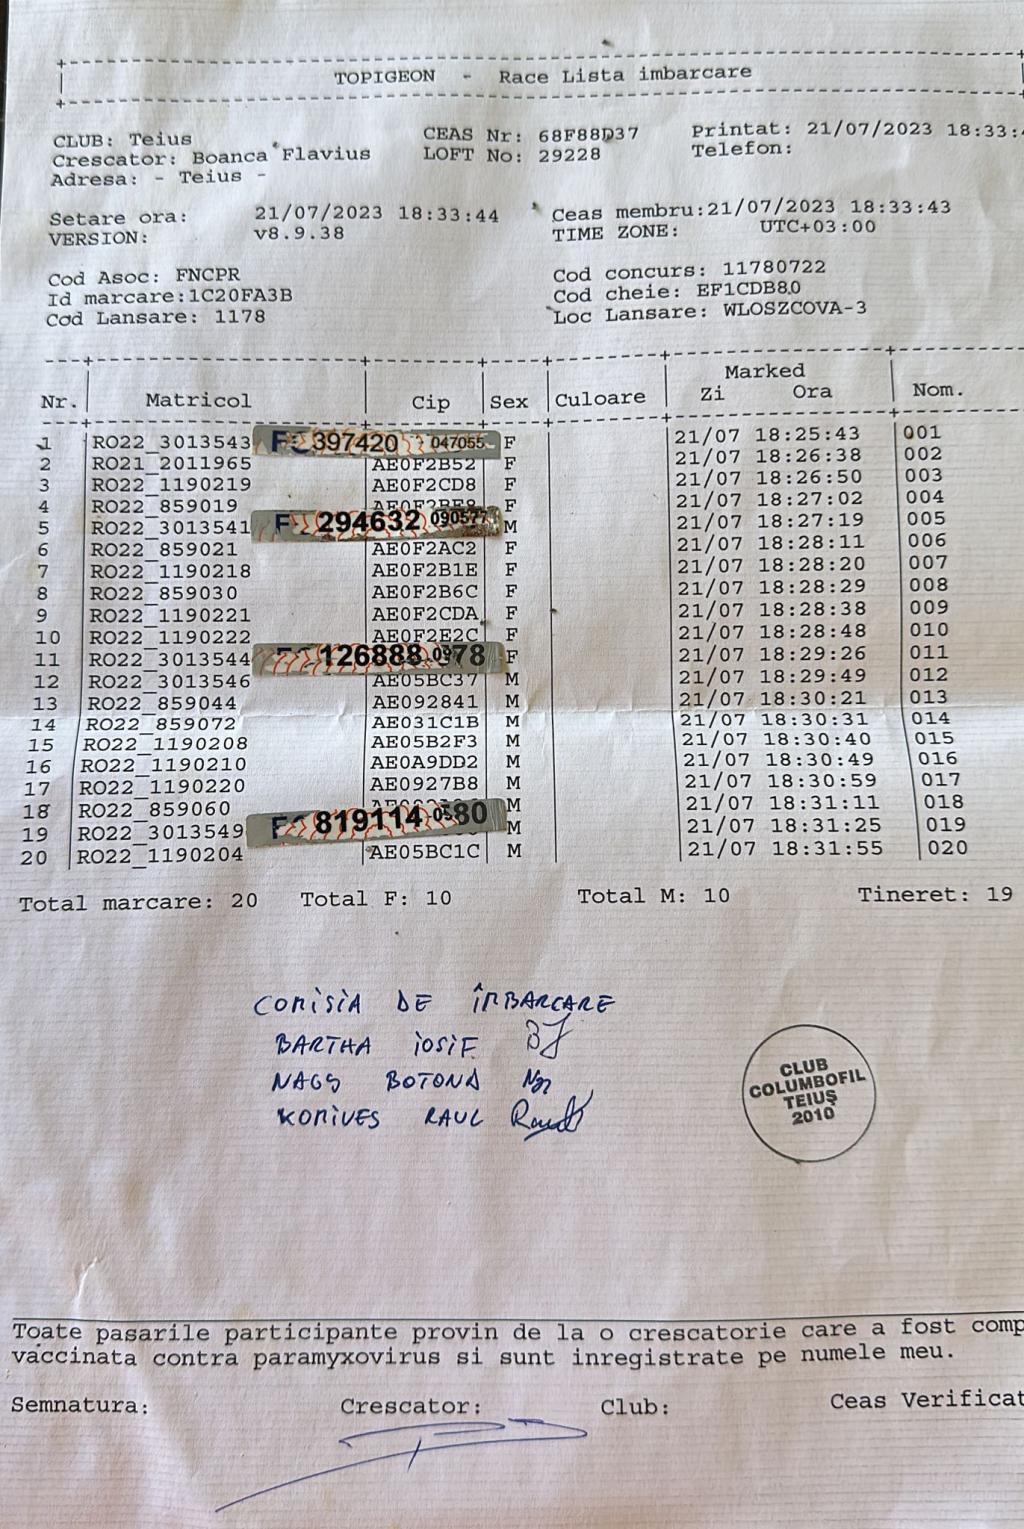 TOPIGEON - Race Lista imbarcare
CLUB: Teius CEAS Nr: 68F88D37 Printat: 21/07/2023 18:33:4
Crescator: Boanca Flavius LOFT No: 29228 Telefon:
Adresa: - Teius -
Setare ora: 21/07/2023 18:33:44 Ceas membru:21/07/2023 18:33:43
VERSION: v8.9.38 TIME ZONE: UTC+03:00
Cod Asoc: FNCPR Cod concurs: 11780722
Id marcare:1C20FA3B Cod cheie: EF1CDB80
Cod Lansare: 1178 Loc Lansare: WLOSZCOVA-3
Marked
Nr. Matricol Cip Sex Culoare Zi Ora Nom.
1 RO22_3013543 397420 047055 F 21/07 18:25:43 001
2 RO21_2011965 AE0F2B52 F 21/07 18:26:38 002
3 RO22_1190219 AE0F2CD8 F 21/07 18:26:50 003
4 RO22_859019 F 21/07 18:27:02 004
5 RO22_3013541 294632 090577 M 21/07 18:27:19 005
6 RO22_859021 AE0F2AC2 F 21/07 18:28:11 006
7 RO22_1190218 AE0F2B1E F 21/07 18:28:20 007
8 RO22_859030 AE0F2B6C F 21/07 18:28:29 008
9 RO22_1190221 AE0F2CDA F 21/07 18:28:38 009
10 RO22_1190222 AE0F2E2C F 21/07 18:28:48 010
11 RO22_3013544 126888 F 21/07 18:29:26 011
12 RO22_3013546 AE05BC37 M 21/07 18:29:49 012
13 RO22_859044 AE092841 M 21/07 18:30:21 013
14 RO22_859072 AE031C1B M 21/07 18:30:31 014
15 RO22_1190208 AE05B2F3 M 21/07 18:30:40 015
16 RO22_1190210 AE0A9DD2 M 21/07 18:30:49 016
17 RO22_1190220 AE0927B8 M 21/07 18:30:59 017
18 RO22_859060 M 21/07 18:31:11 018
19 RO22_3013549 819114 M 21/07 18:31:25 019
20 RO22_1190204 AE05BC1C M 21/07 18:31:55 020
Total marcare: 20 Total F: 10 Total M: 10 Tineret: 19
COMISIA DE ÎMBARCARE
BARTHA IOSIF BJ
NAGS BOTOND
KOMIVES RAUL Raul
CLUB
COLUMBOFIL
TEIUȘ
2010
Toate pasarile participante provin de la o crescatorie care a fost comp
vaccinata contra paramyxovirus si sunt inregistrate pe numele meu.
Semnatura: Crescator: Club: Ceas Verificat